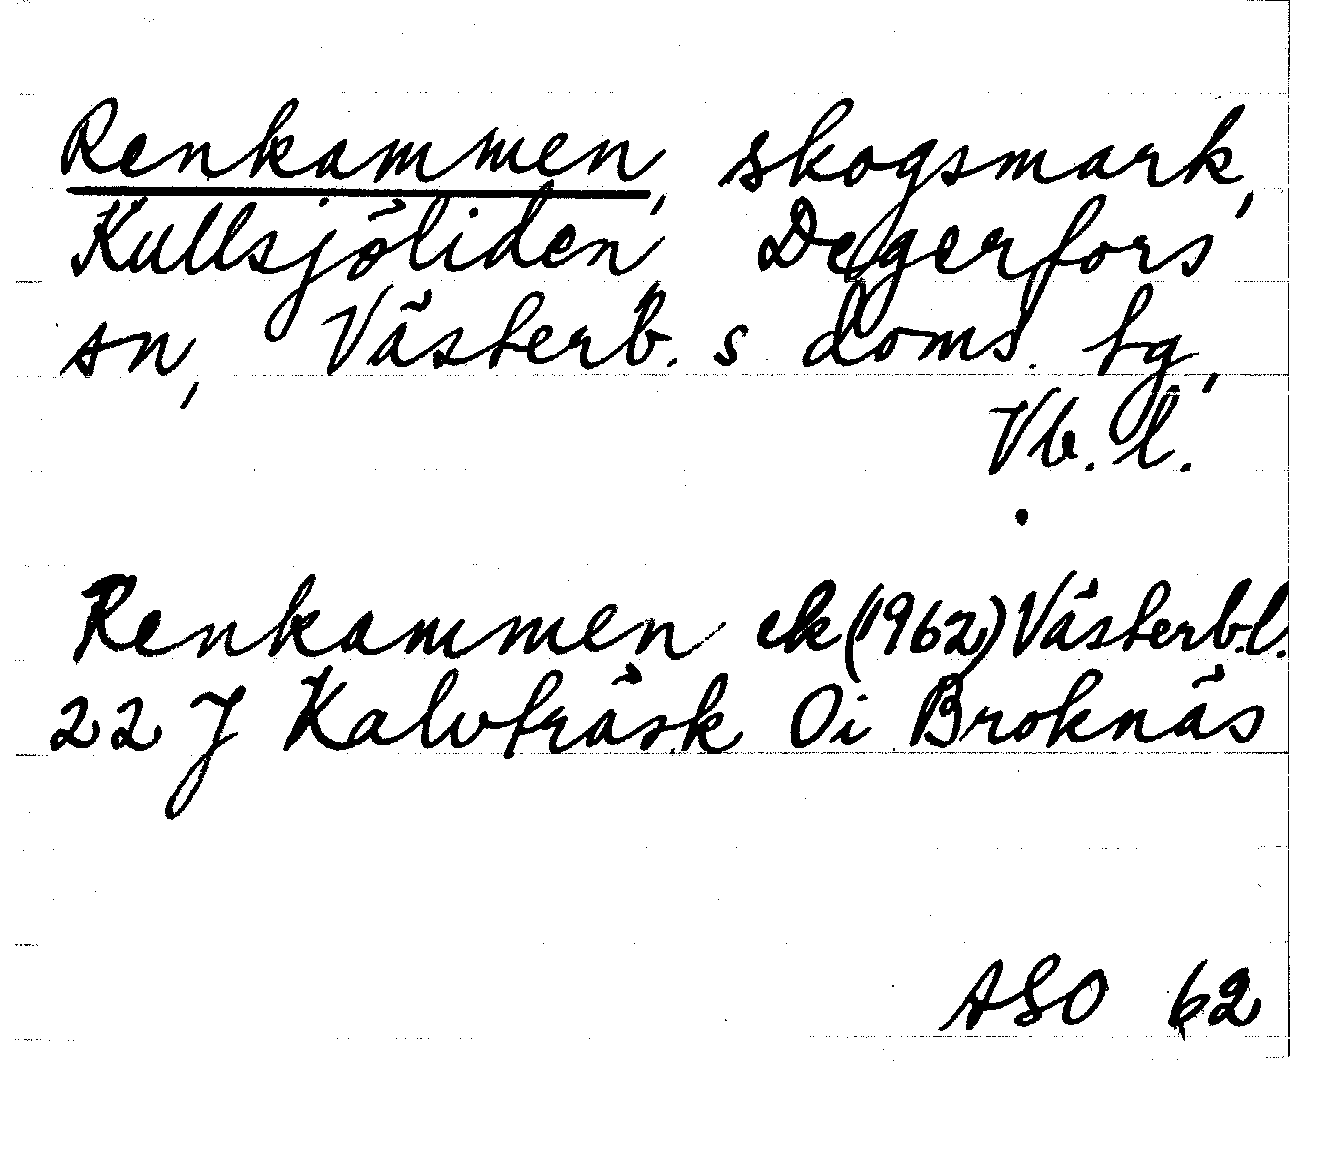 Renkammen, skogsmark,
Kullsjöliden Degerfors
sn, Västerb. s doms. tg,
Vb. l.
Renkammen ek (1962) Västerb. l.
22 J Kalvträsk Oi Broknäs
ASO 62